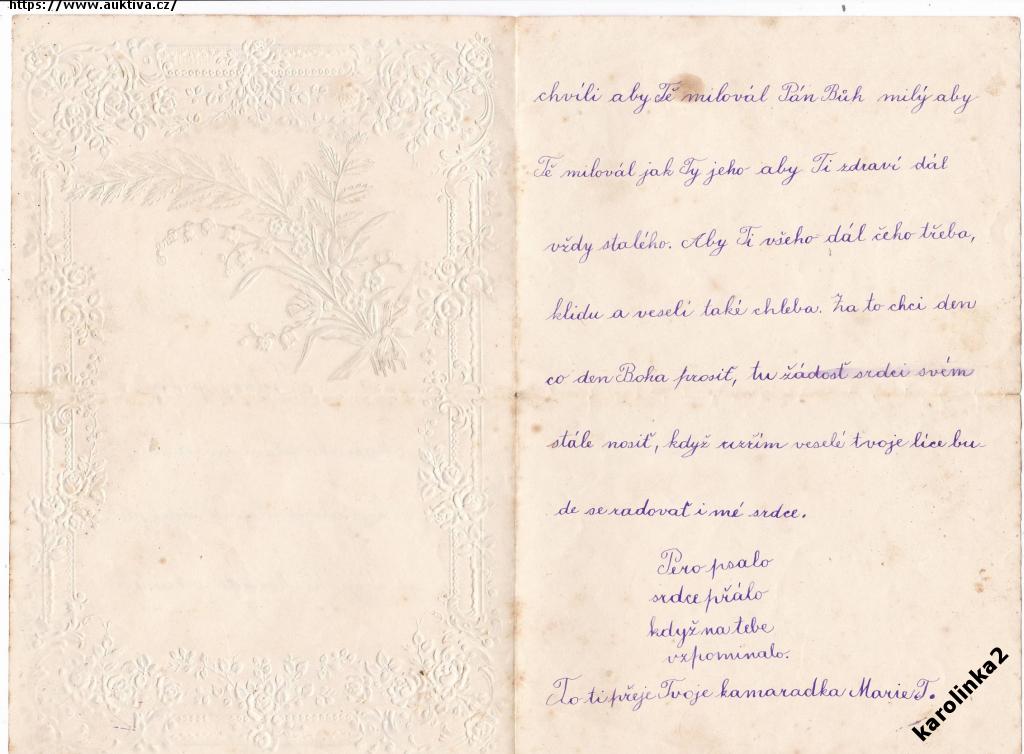 https://www.auktiva.cz/
chvíli aby Tě milovál Pán Bůh milý aby
Tě milovál jak Ty jeho aby Ti zdraví dál
vždy stalého. Aby Ti všeho dál čeho třeba,
klidu a veselí také chleba. Za to chci den
co den Boha prosiť, tu žádosť srdci svém
stále nosiť, když uzřím veselé tvoje líce bu-
de se radovať i mé srdce.
Pero psalo
srdce přálo
když na tebe
vzpomínalo.
To ti přeje Tvoje kamaradka Marie T.
karolinka2